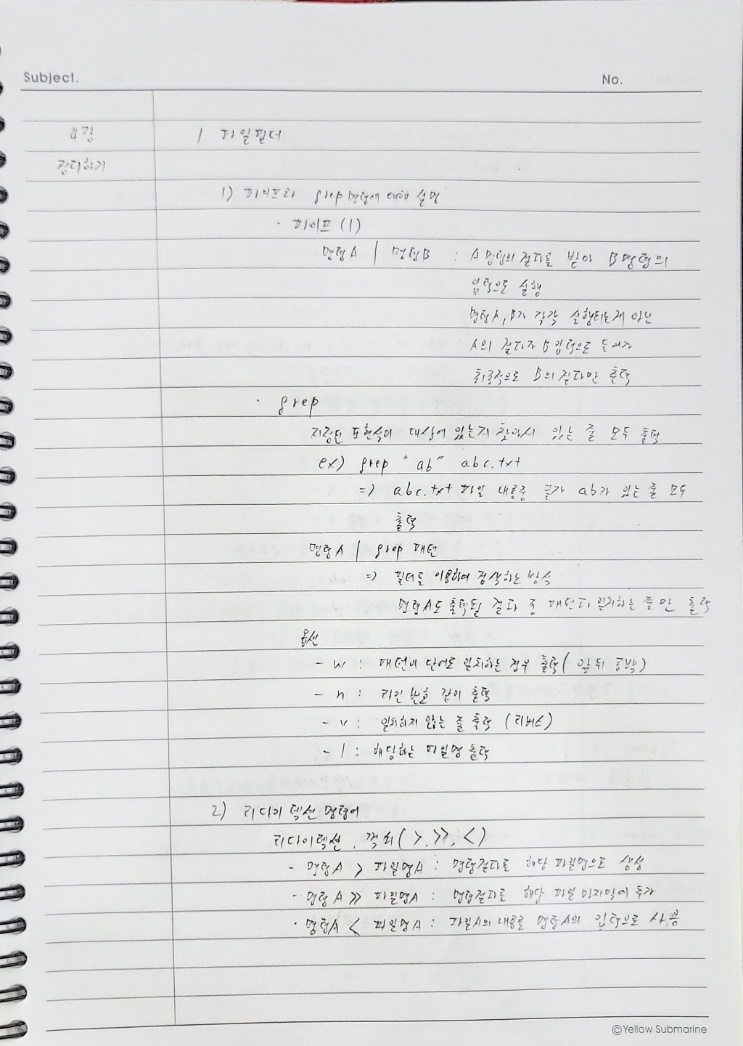 Subject.
No.
4장
정리하기
1 파일필터
1) 파이프와 grep명령에 대해 설명
· 파이프 (|)
명령A | 명령B : A명령의 결과를 받아 B명령의
입력으로 실행
명령A, B가 각각 실행되는게 아닌
A의 결과가 B입력으로 들어가
최종적으로 B의 결과만 출력
· grep
지정된 표현식이 대상에 있는지 찾아서 있는 줄 모두 출력
ex) grep "ab" abc.txt
=> abc.txt 파일 내용중 글자 ab가 있는 줄 모두
출력
명령A | grep 패턴
=> 필터를 이용하여 검색하는 방식
명령A로 출력된 결과 중 패턴과 일치하는 줄만 출력
옵션
- w : 패턴이 단어로 일치하는 경우 출력( 앞 뒤 공백)
- n : 라인 번호 같이 출력
- v : 일치하지 않는 줄 출력 (리버스)
- l : 해당하는 파일명 출력
2) 리다이렉션 명령어
리다이렉션, 꺽쇠(>, >>, <)
- 명령A > 파일명A : 명령결과를 해당 파일명으로 생성
· 명령A >> 파일명A : 명령결과를 해당 파일 마지막에 추가
· 명령A < 파일명A : 파일A의 내용을 명령A의 입력으로 사용
©Yellow Submarine